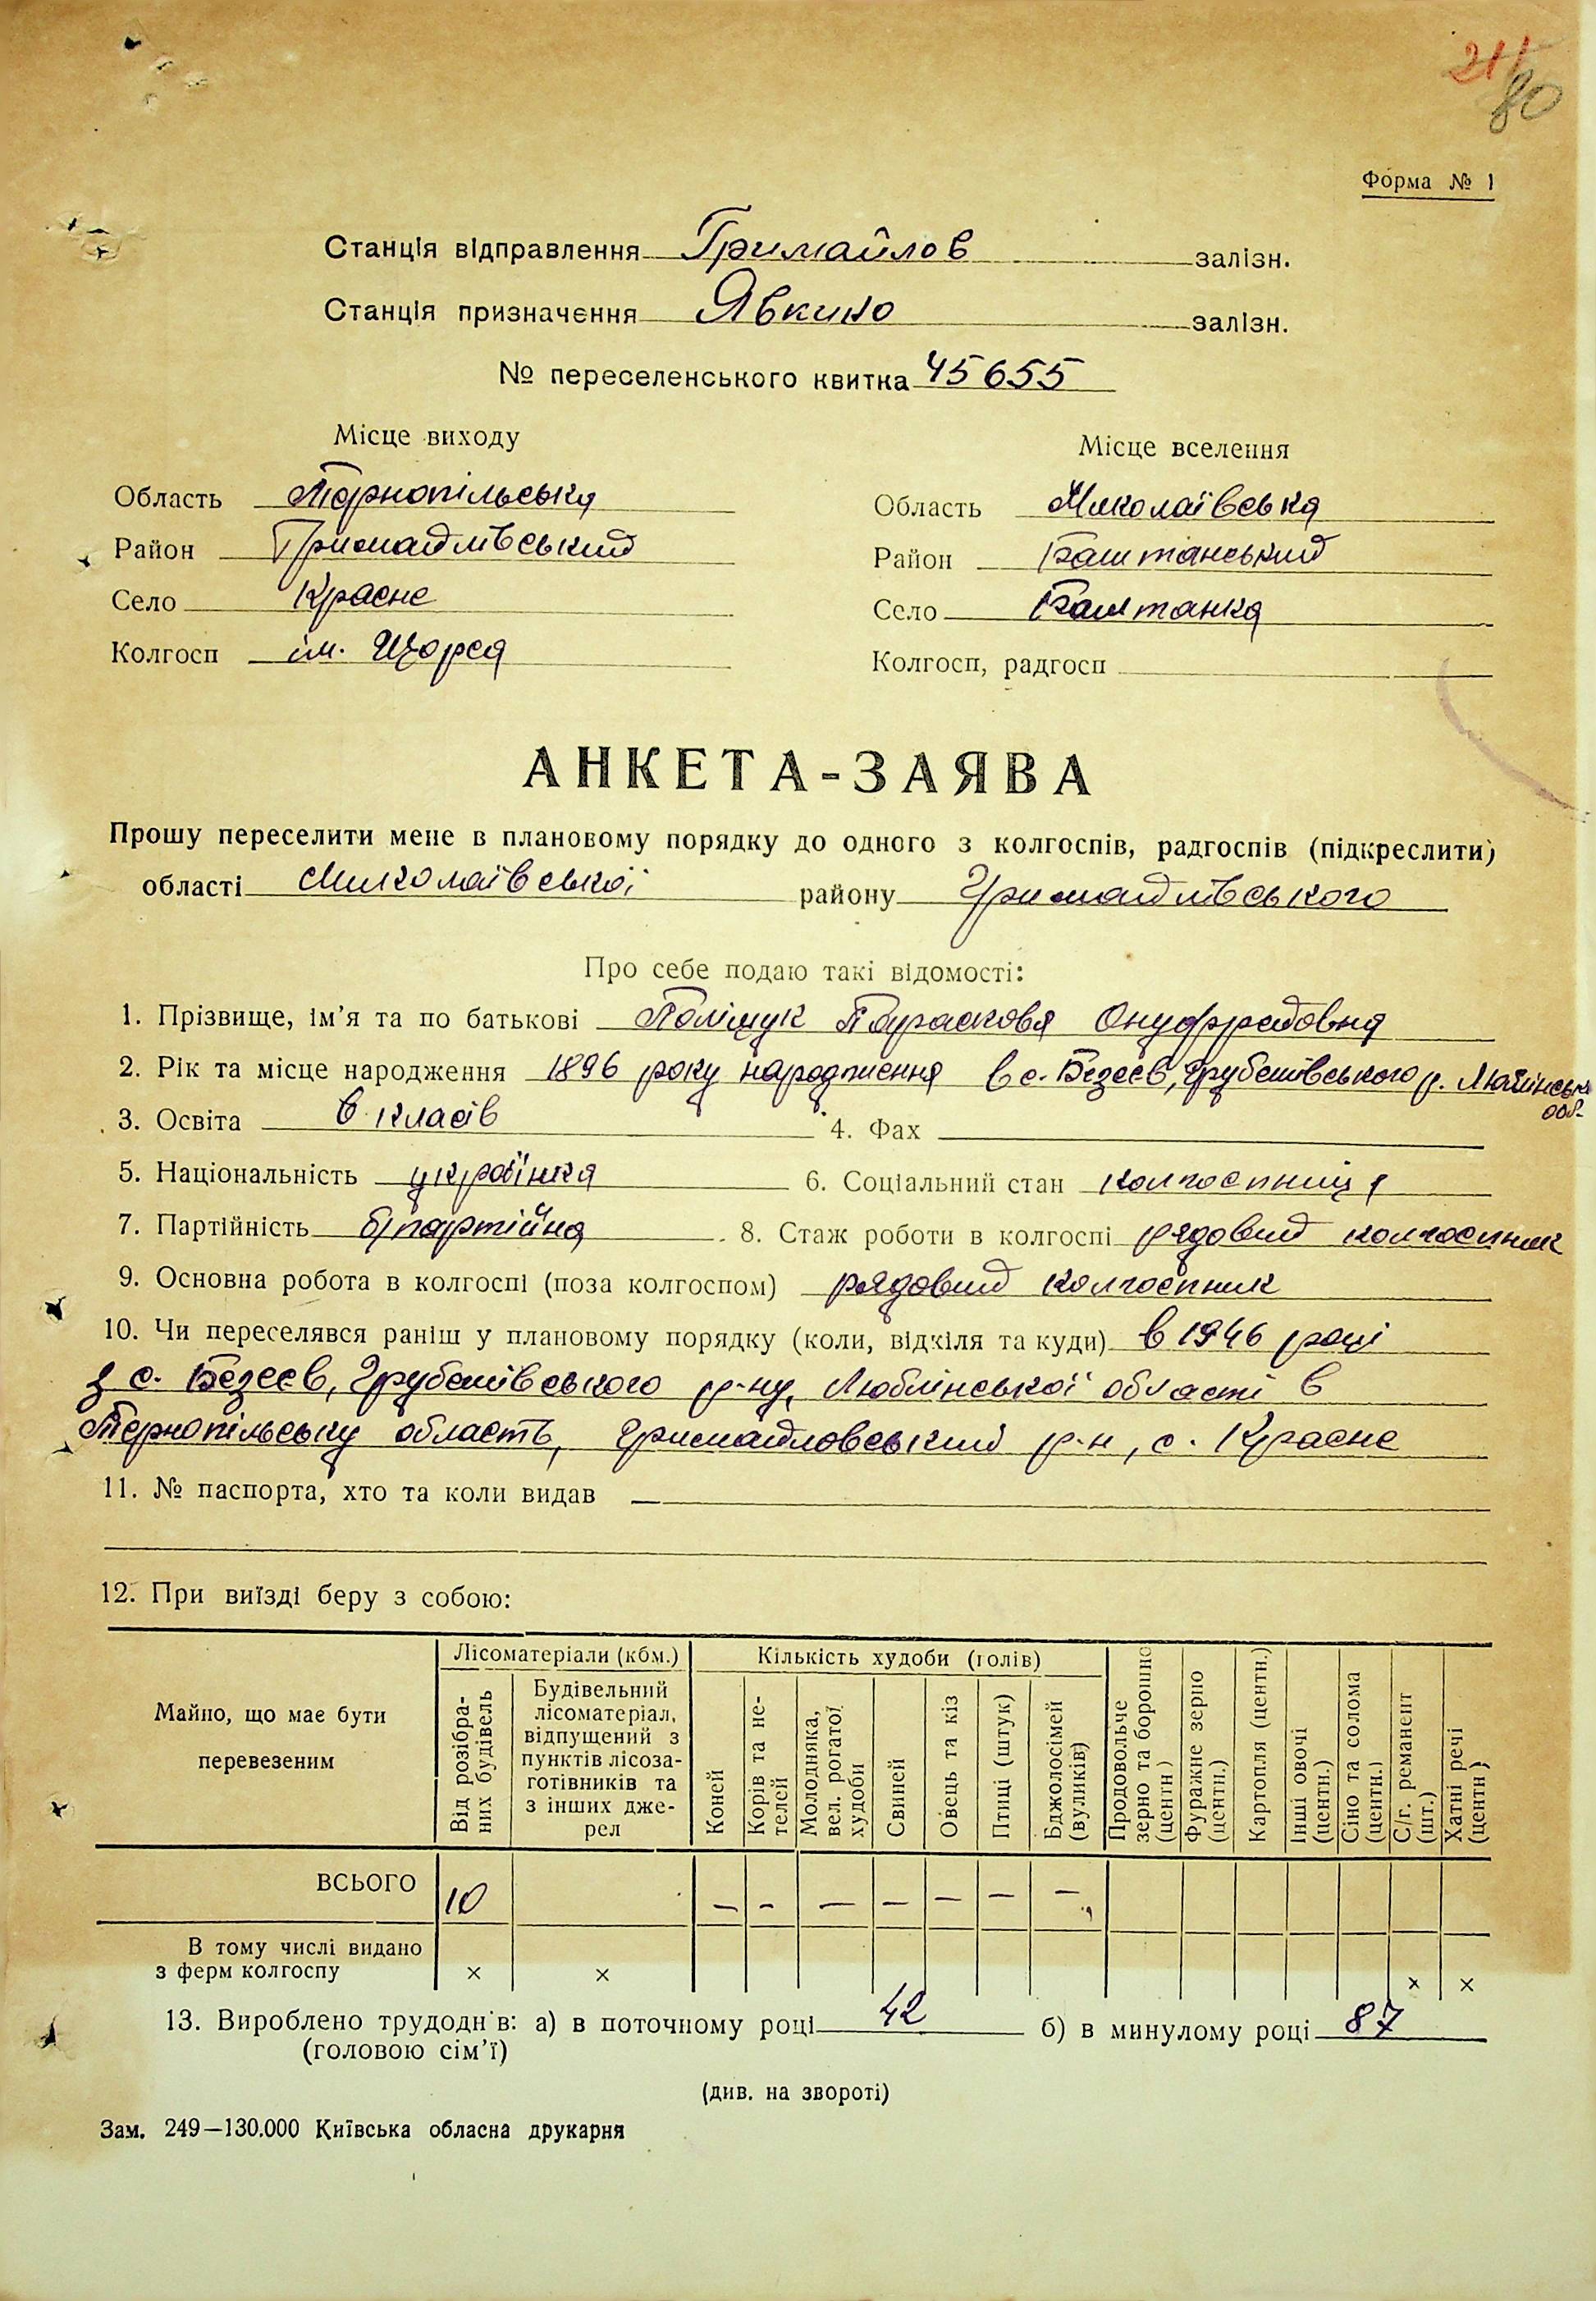 211
80
Форма № 1
Станція відправлення Гримайлов залізн.
Станція призначення Явкино залізн.
№ переселенського квитка 45655
Місце виходу
Місце вселення
Область Тернопільська
Область Миколаївська
Район Гримайлівський
Район Баштанський
Село Красне
Село Баштанка
Колгосп ім. Щорса
Колгосп, радгосп
АНКЕТА-ЗАЯВА
Прошу переселити мене в плановому порядку до одного з колгоспів, радгоспів (підкреслити)
області Миколаївської району Гримайлівського
Про себе подаю такі відомості:
1. Прізвище, ім’я та по батькові Поліщук Парасковя Онуфрієвна
2. Рік та місце народження 1896 року народження в с. Безеєв, Грубешівського р. Люблінськ
обл.
3. Освіта 6 класів 4. Фах
5. Національність українка 6. Соціальний стан колгоспниця
7. Партійність б/партійна 8. Стаж роботи в колгоспі рядовий колгоспник
9. Основна робота в колгоспі (поза колгоспом) рядовий колгоспник
10. Чи переселявся раніш у плановому порядку (коли, відкіля та куди) в 1946 році
з с. Безеєв, Грубешівського р-ну, Люблінської області в
Тернопільську область, Гримайловський р-н, с. Красне
11. № паспорта, хто та коли видав —
12. При виїзді беру з собою:
Майно, що має бути перевезеним
Лісоматеріали (кбм.)
Кількість худоби (голів)
Від розібраних будівель
Будівельний
лісоматеріал,
відпущений з
пунктів лісоза-
готівників та
з інших дже-
рел
Коней
Корів та не-
телей
Молодняка,
вел. рогатої
худоби
Свиней
Овець та кіз
Птиці (штук)
Бджолосімей
(вуликів)
Продовольче
зерно та борошно
(центн)
Фуражне зерно
(центн.)
Картопля (центн.)
Інші овочі
(центн.)
Сіно та солома
(центн.)
С/г. реманент
(шт.)
Хатні речі
(центн)
ВСЬОГО 10 — — — — — — —
В тому числі видано
з ферм колгоспу × × × ×
13. Вироблено трудоднів: а) в поточному році 42 б) в минулому році 87
(головою сім’ї)
(див. на звороті)
Зам. 249—130.000 Київська обласна друкарня